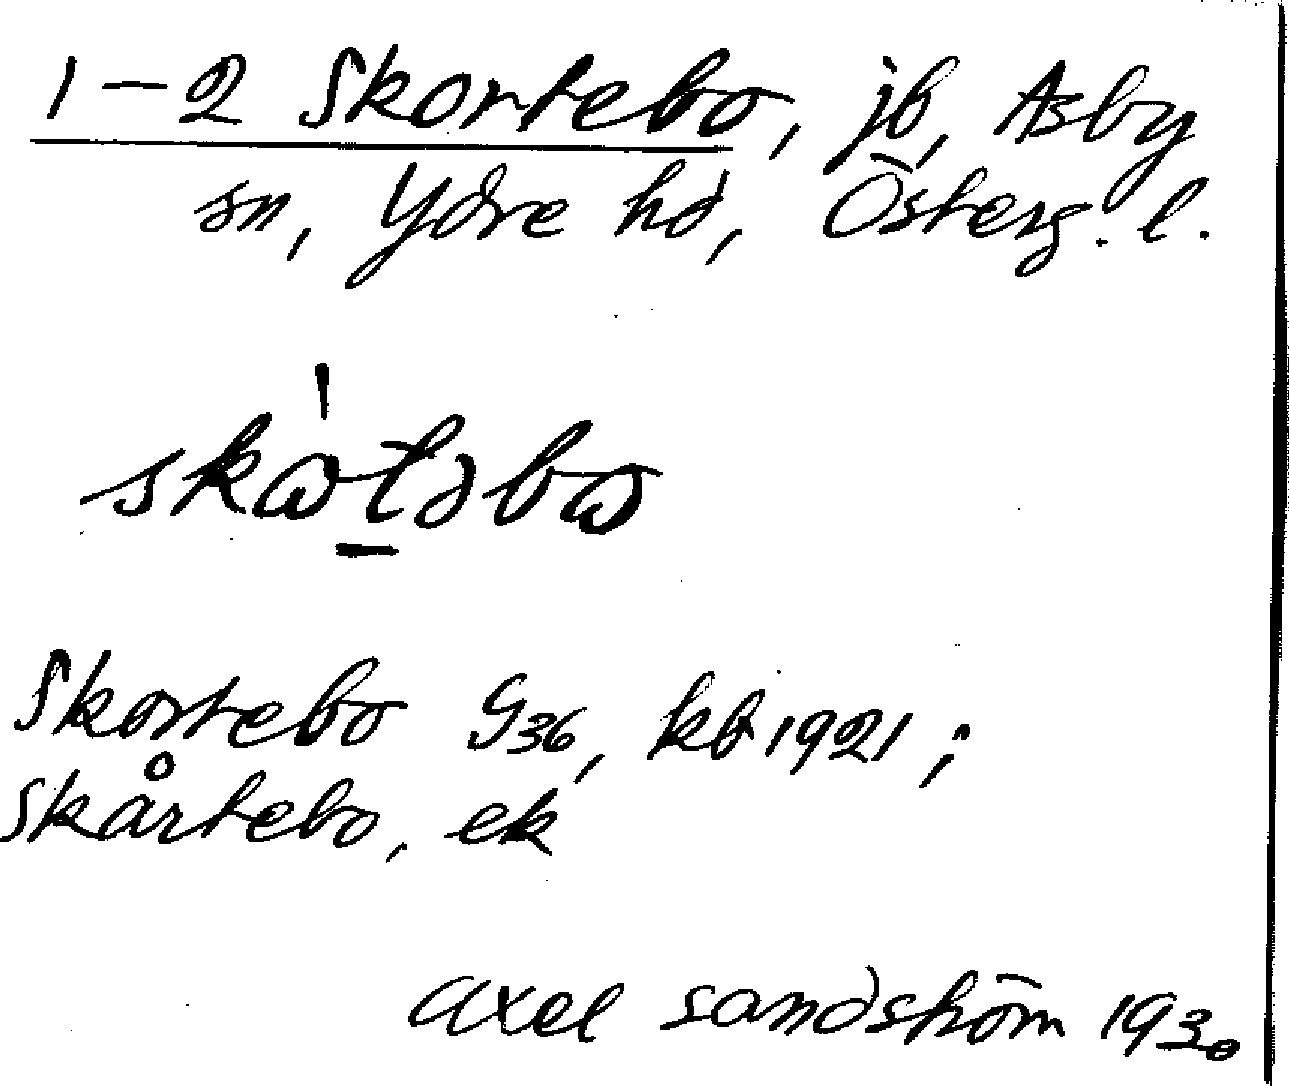 1-2 Skortebo, jb, Asby
sn, Ydre hd, Österg. l.
Skortebo G36, kb 1921;
Skårtebo, ek
Axel Sandström 1930